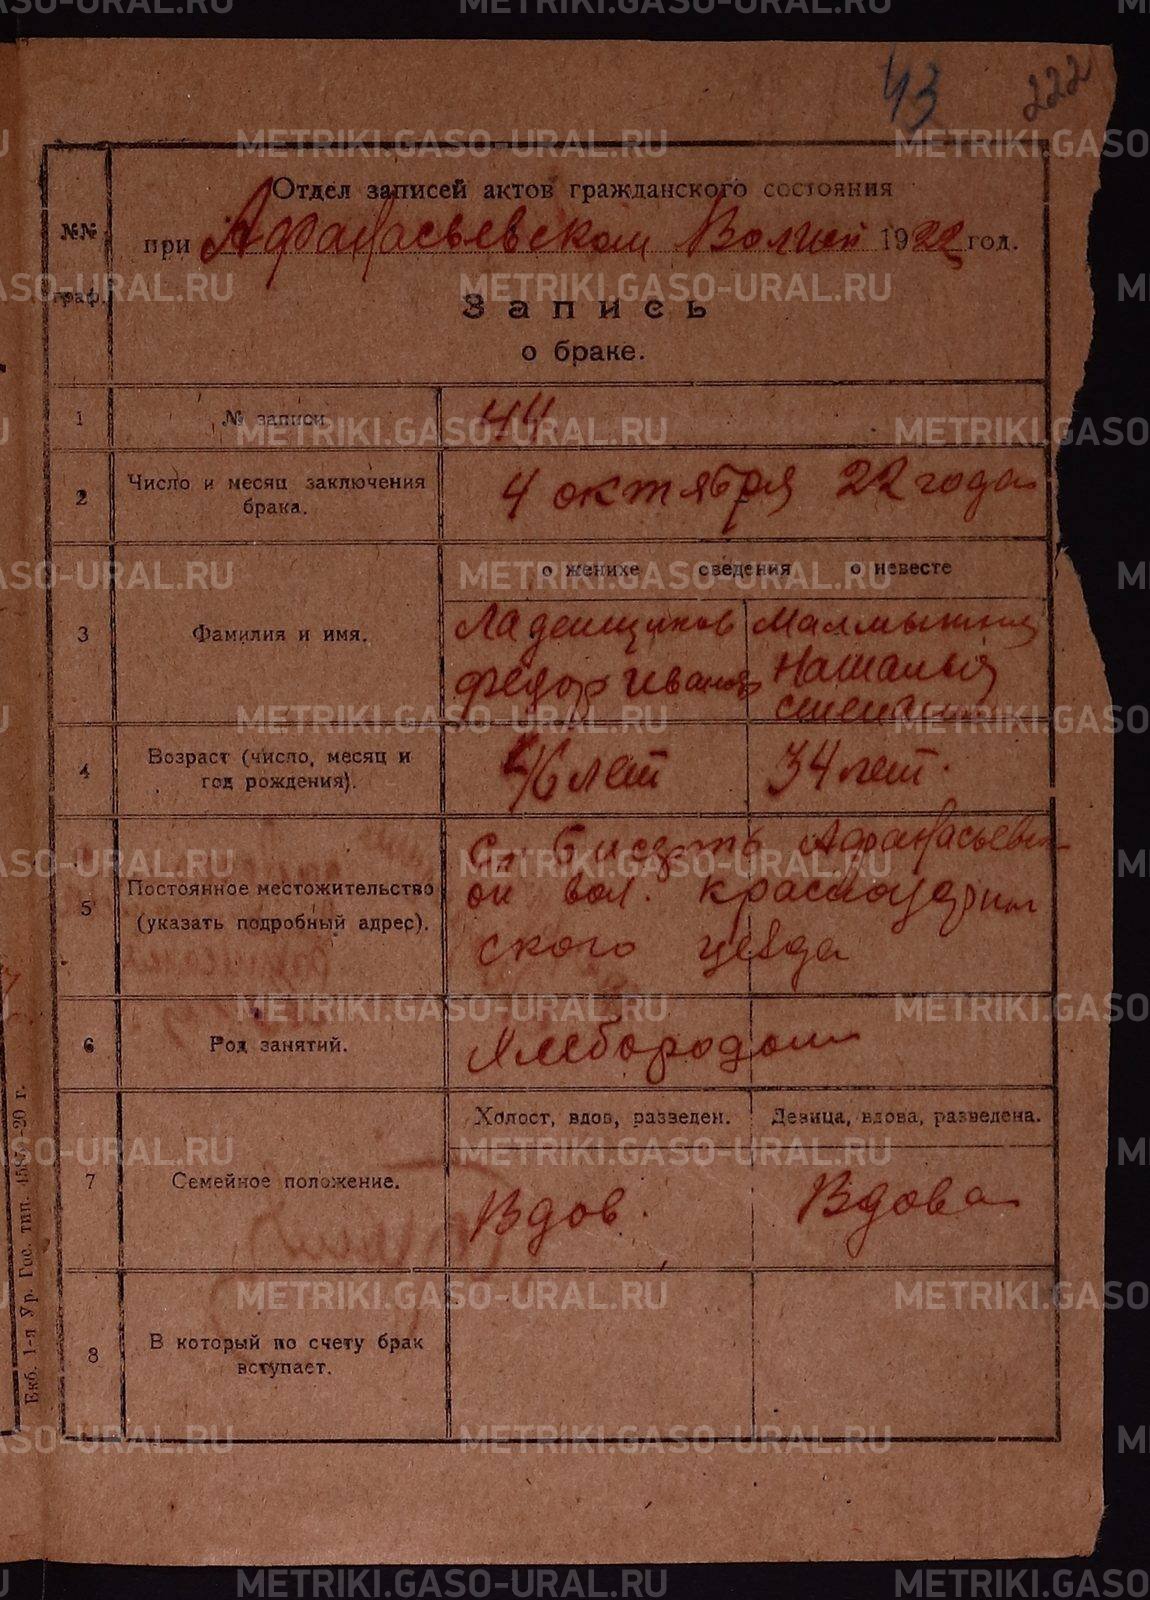 43
222
№№ граф.
Отдел записей актов гражданского состояния
при Афанасьевском Волисп 1922 год.
Запись
о браке.
1
№ записи
44
2
Число и месяц заключения
брака.
4 октября 22 года
о женихе сведения о невесте
3
Фамилия и имя.
Ладейщиков
Федор Иванов
Малмыгина
Наталья
4
Возраст (число, месяц и
год рождения).
46 лет
34 лет.
5
Постоянное местожительство
(указать подробный адрес).
с. Бисерть Афанасьевск-
ой вол. красноуфим
ского уезда
6
Род занятий.
Хлебородом
7
Семейное положение.
Холост, вдов, разведен.
Девица, вдова, разведена.
Вдов.
Вдова
8
В который по счету брак
вступает.
Екб. 1-я Ур. Гос. тип. 20 г.
METRIKI.GASO-URAL.RU